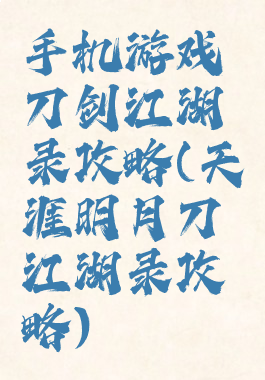 手机游戏
刀剑江湖
录攻略(天
涯明月刀
江湖录攻
略)